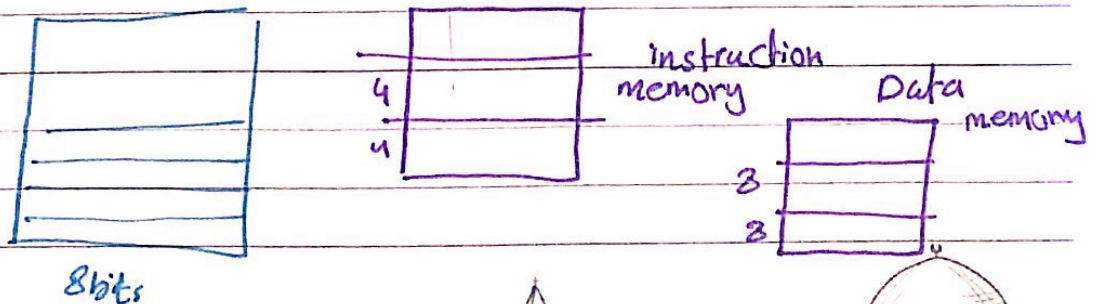 instruction
memory
4
4
Data
memory
8
8
8bits